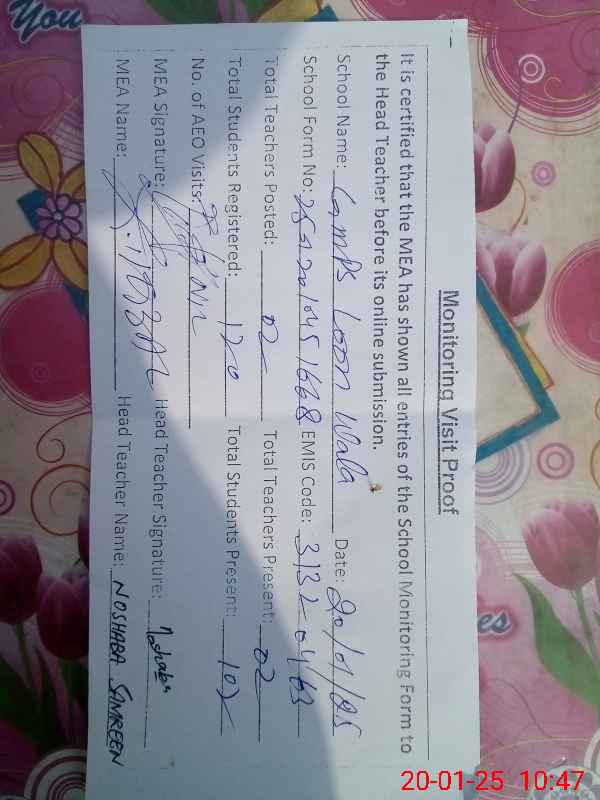 Monitoring Visit Proof
It is certified that the MEA has shown all entries of the School Monitoring Form to
the Head Teacher before its online submission.
School Name: GMPS Loon Wala Date: 20/01/25
School Form No: EMIS Code: 31320463
Total Teachers Posted: 02 Total Teachers Present: 02
Total Students Registered: 120 Total Students Present: 102
No. of AEO Visits:
MEA Signature: Head Teacher Signature: Noshaba
MEA Name: Head Teacher Name: NOSHABA SAMREEN
You
es
20-01-25 10:47